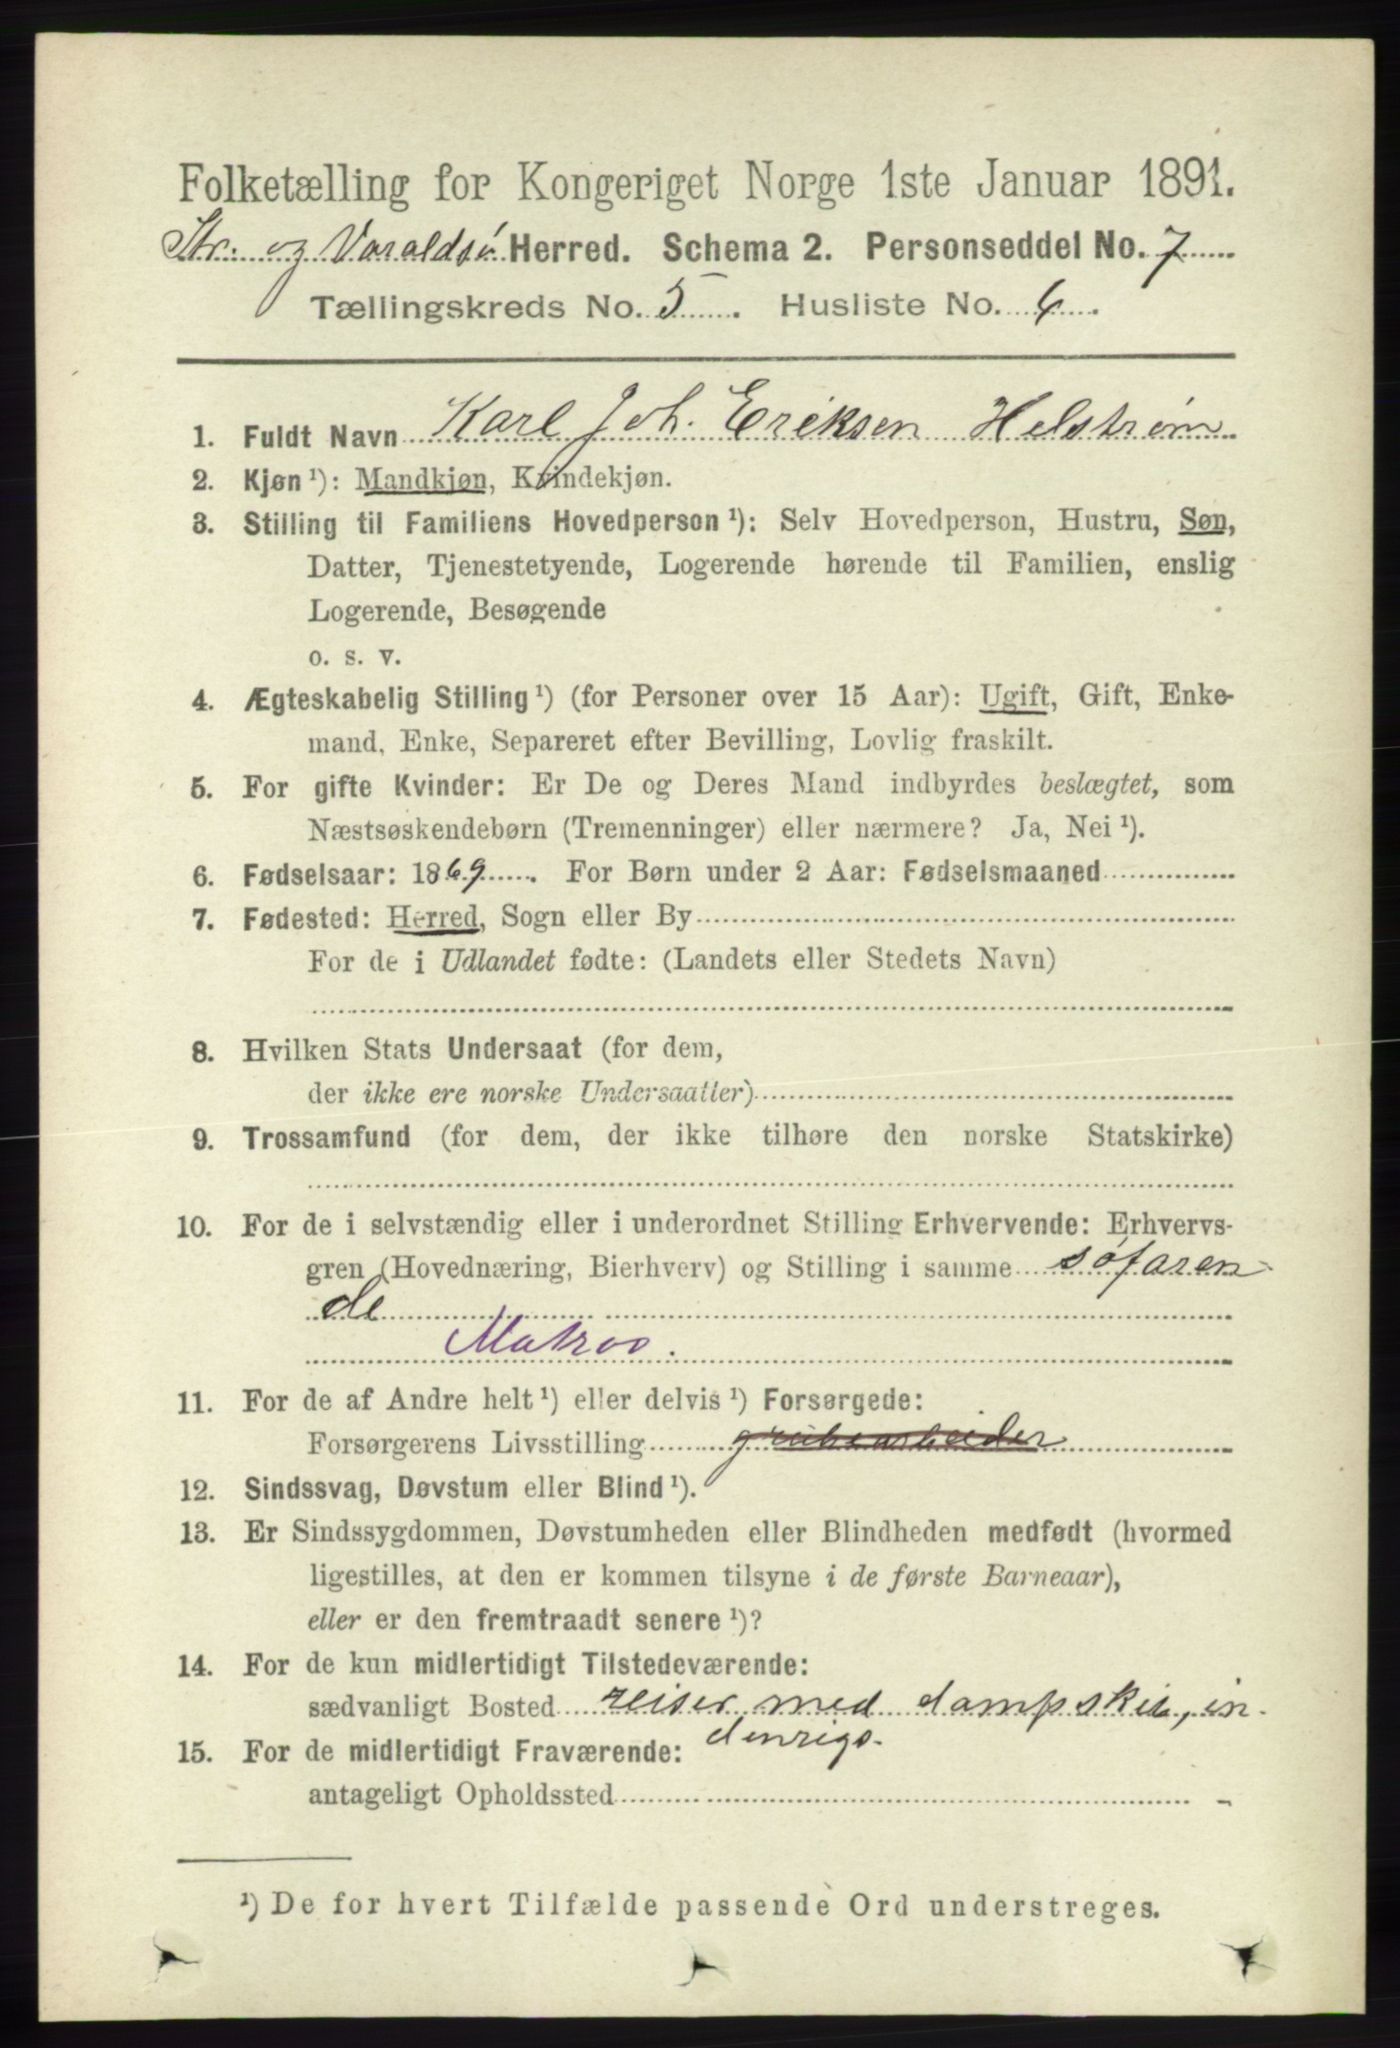 Folketælling for Kongeriget Norge 1ste Januar 1891.
Str. og Varaldsø Herred. Schema 2. Personseddel No. 7
Tællingskreds No. 5. Husliste No. 6.
1. Fuldt Navn Karl Joh. Eriksen Helstrøm
2. Kjøn ¹): Mandkjøn, Kvindekjøn.
3. Stilling til Familiens Hovedperson ¹): Selv Hovedperson, Hustru, Søn,
Datter, Tjenestetyende, Logerende hørende til Familien, enslig
Logerende, Besøgende
o. s. v.
4. Ægteskabelig Stilling ¹) (for Personer over 15 Aar): Ugift, Gift, Enke-
mand, Enke, Separeret efter Bevilling, Lovlig fraskilt.
5. For gifte Kvinder: Er De og Deres Mand indbyrdes beslægtet, som
Næstsøskendebørn (Tremenninger) eller nærmere? Ja, Nei ¹).
6. Fødselsaar: 1869. For Børn under 2 Aar: Fødselsmaaned
7. Fødested: Herred, Sogn eller By
For de i Udlandet fødte: (Landets eller Stedets Navn)
8. Hvilken Stats Undersaat (for dem,
der ikke ere norske Undersaatter)
9. Trossamfund (for dem, der ikke tilhøre den norske Statskirke)
10. For de i selvstændig eller i underordnet Stilling Erhvervende: Erhvervs-
gren (Hovednæring, Bierhverv) og Stilling i samme søfaren
de
Matros.
11. For de af Andre helt ¹) eller delvis ¹) Forsørgede:
Forsørgerens Livsstilling grubearbeider
12. Sindssvag, Døvstum eller Blind ¹).
13. Er Sindssygdommen, Døvstumheden eller Blindheden medfødt (hvormed
ligestilles, at den er kommen tilsyne i de første Barneaar),
eller er den fremtraadt senere ¹)?
14. For de kun midlertidigt Tilstedeværende:
sædvanligt Bosted reiser med dampskib, in-
denrigs.
15. For de midlertidigt Fraværende:
antageligt Opholdssted
¹) De for hvert Tilfælde passende Ord understreges.